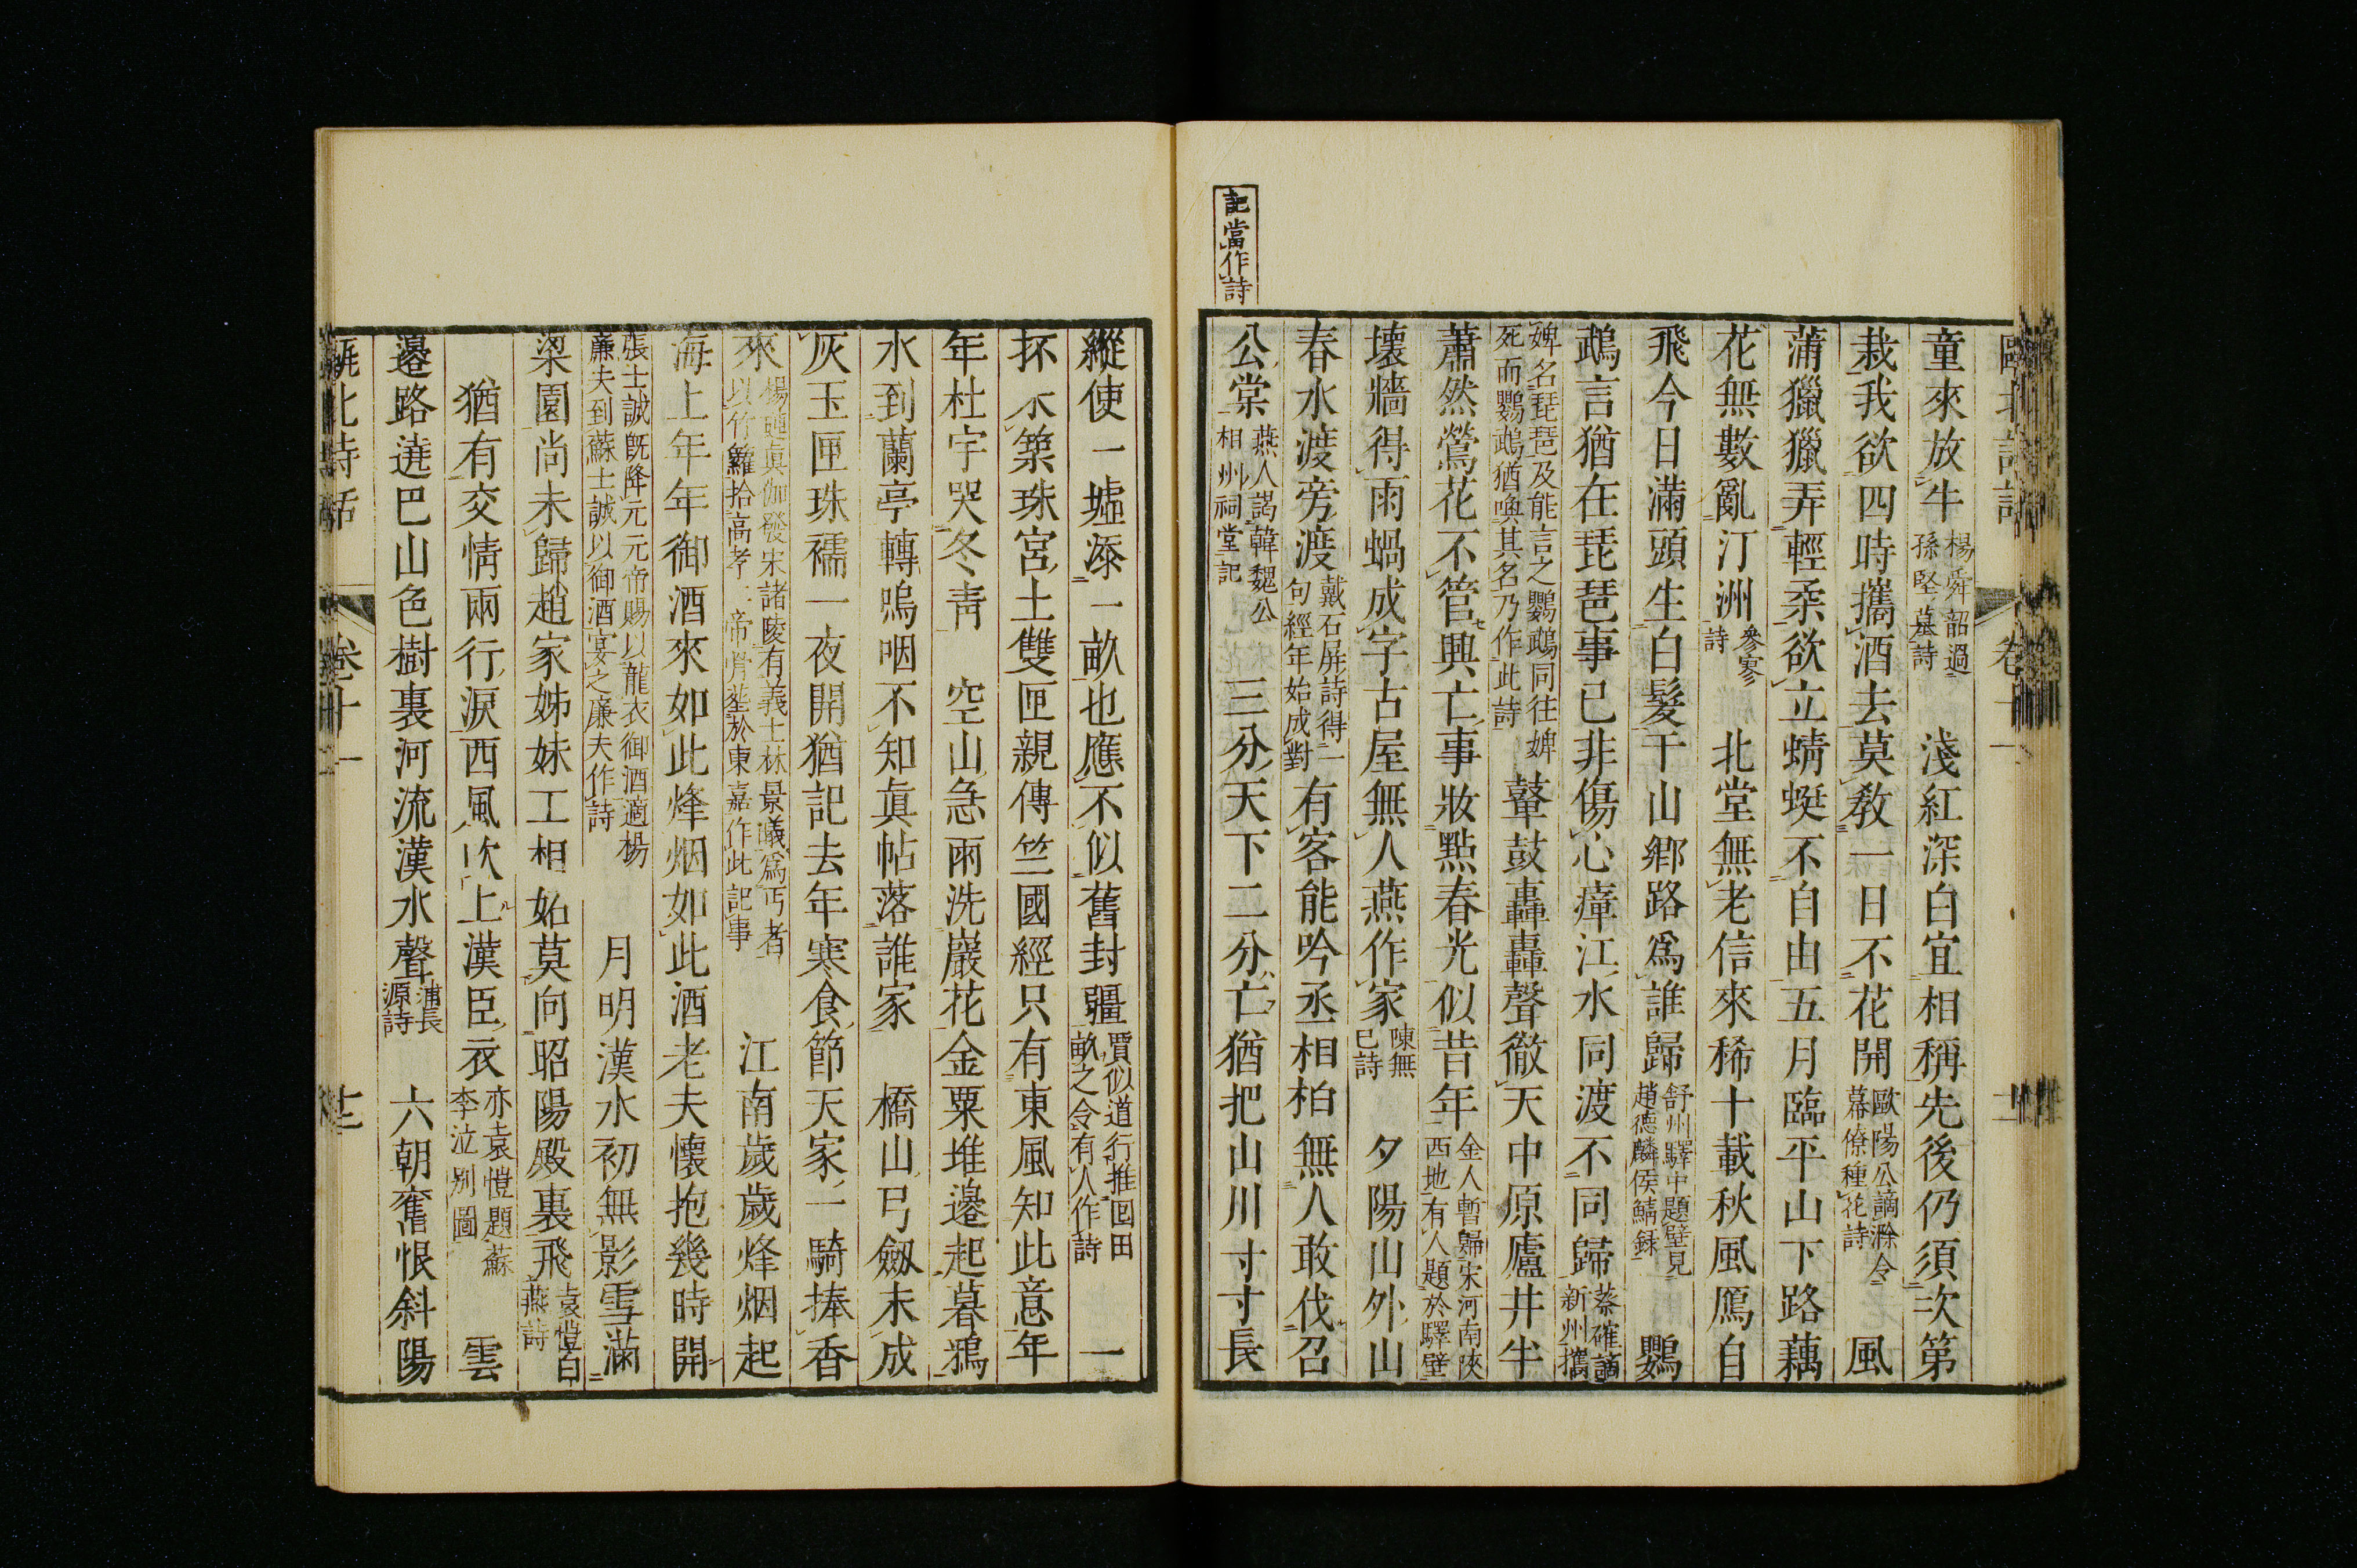 記當作詩
童來放牛楊舜韶過孫堅墓詩 淺紅深白宜相稱先後仍須次第
栽我欲四時攜酒去莫教一日不花開歐陽公謫滁令幕僚種花詩 風
蒲獵獵弄輕柔欲立蜻蜓不自由五月臨平山下路藕
花無數亂汀洲參寥詩 北堂無老信來稀十載秋風鴈自
飛今日滿頭生白髮千山鄉路爲誰歸舒州驛中題壁見趙德麟侯鯖錄 鸚
鵡言猶在琵琶事已非傷心瘴江水同渡不同歸蔡確謫新州攜
婢名琵琶及能言之鸚鵡同往婢死而鸚鵡猶喚其名乃作此詩 鼙鼓轟轟聲徹天中原廬井半
蕭然鶯花不管興亡事妝點春光似昔年金人暫歸宋河南陝西地有人題於驛壁
壞牆得雨蝸成字古屋無人燕作家陳無巳詩 夕陽山外山
春水渡旁渡戴石屏詩得二句經年始成對 有客能吟丞相柏無人敢伐召
公棠燕人謁韓魏公相州祠堂記 三分天下二分亡猶把山川寸寸長
縱使一墟添一畝也應不似舊封疆賈似道行推囘田畝之令有人作詩 一
抔不築珠宮土雙匣親傳竺國經只有東風知此意年
年杜宇哭冬靑 空山急雨洗巖花金粟堆邊起暮鴉
水到蘭亭轉嗚咽不知眞帖落誰家 橋山弓劔未成
灰玉匣珠襦一夜開猶記去年寒食節天家一騎捧香
來楊璉眞伽發宋諸陵有義士林景曦爲丐者以竹籮拾高孝二帝骨塟於東嘉作此記事 江南歲歲烽烟起
海上年年御酒來如此烽烟如此酒老夫懷抱幾時開
張士誠旣降元元帝賜以龍衣御酒適楊廉夫到蘇士誠以御酒宴之廉夫作詩 月明漢水初無影雪滿
梁園尚未歸趙家姊妹工相妬莫向昭陽殿裏飛袁愷白燕詩
猶有交情兩行淚西風吹上漢臣衣亦袁愷題蘇李泣別圖 雲
邉路遶巴山色樹裏河流漢水聲浦長源詩 六朝舊恨斜陽
甌北詩話 卷十一 十二